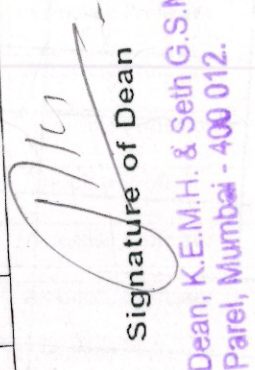 Signature of Dean
Dean, K.E.M.H. & Seth G.S.
Parel, Mumbai - 400 012.